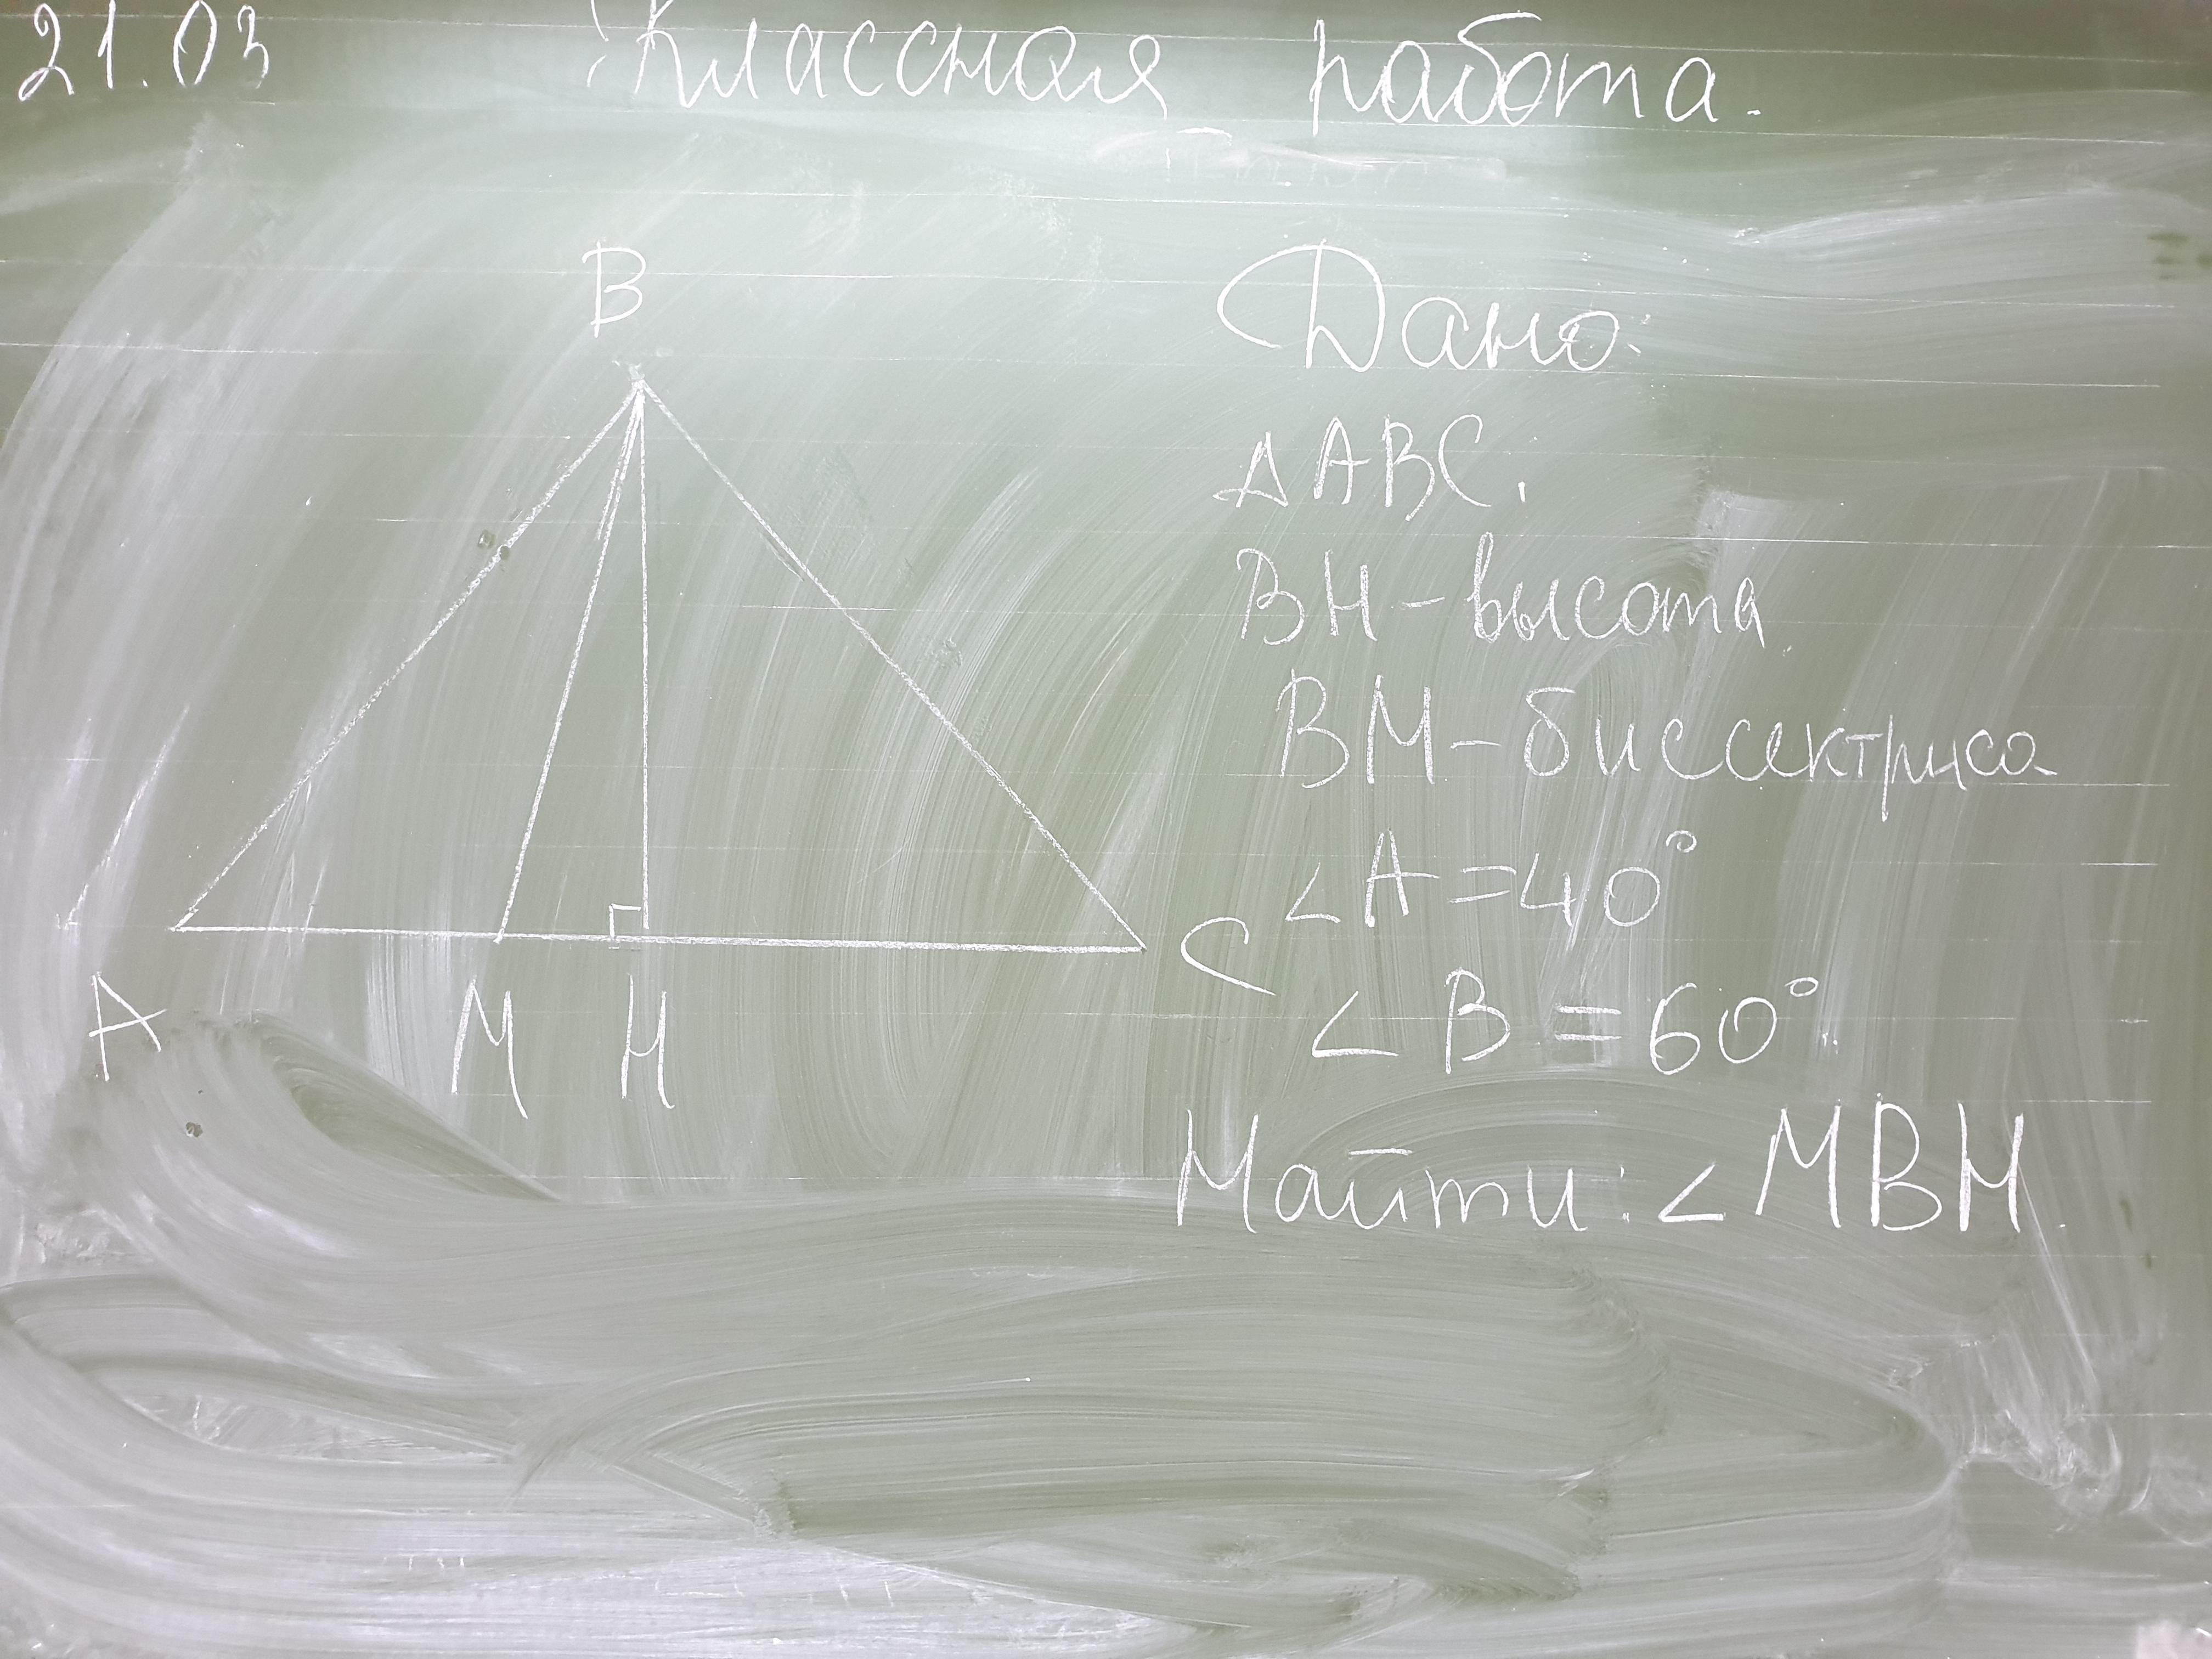 21.03 Классная работа.
B
Дано:
ΔABC,
BH - высота
BM - биссектриса
∠A = 40°
C
∠B = 60°.
A M H
Найти: ∠MBH.